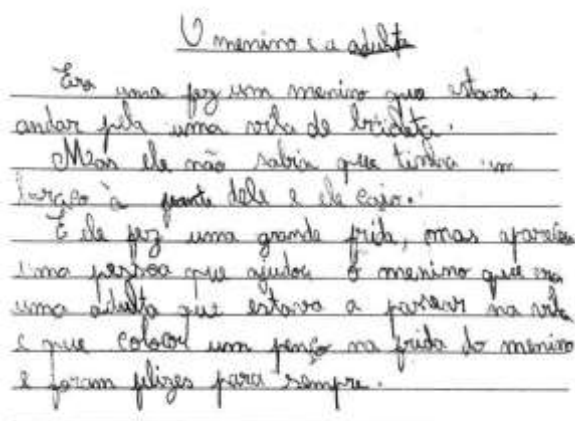 O menino e a adulta
Era uma fez um menino que estava a
andar pela uma vila de bicicleta.
Mas ele não sabia que tinha um
buraco à frente dele e ele caio.
E ele fez uma grande frida, mas apareceu
uma pessoa que ajudou o menino que era
uma adulta que estava a passear na vila
e que colocou um penço na frida do menino
e foram felizes para sempre.